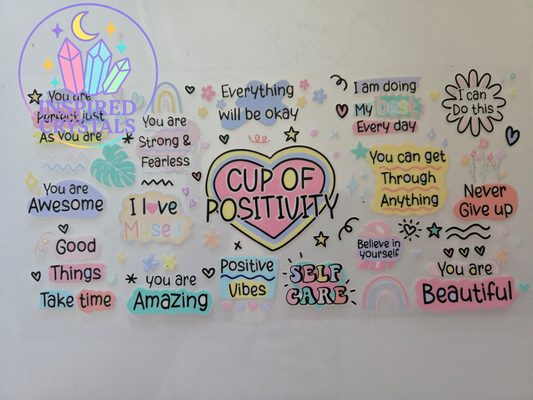 You are
perfect just
As you are
INSPIRED
CRYSTALS
You are
Strong &
Fearless
Everything
Will be okay
I am doing
My best
Every day
I can
Do this
You are
Awesome
I love
Myself
CUP OF
POSITIVITY
You can get
Through
Anything
Never
Give up
Good
Things
Take time
you are
Amazing
Positive
Vibes
SELF
CARE
Believe in
yourself
You are
Beautiful